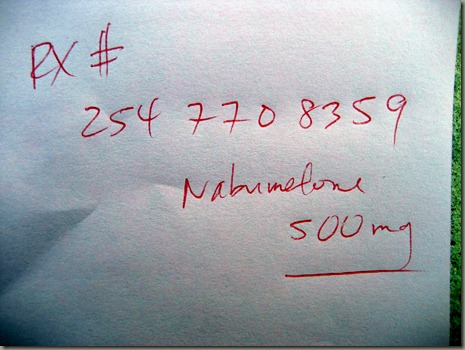 RX #
254 770 8359
Nabumetone
500mg